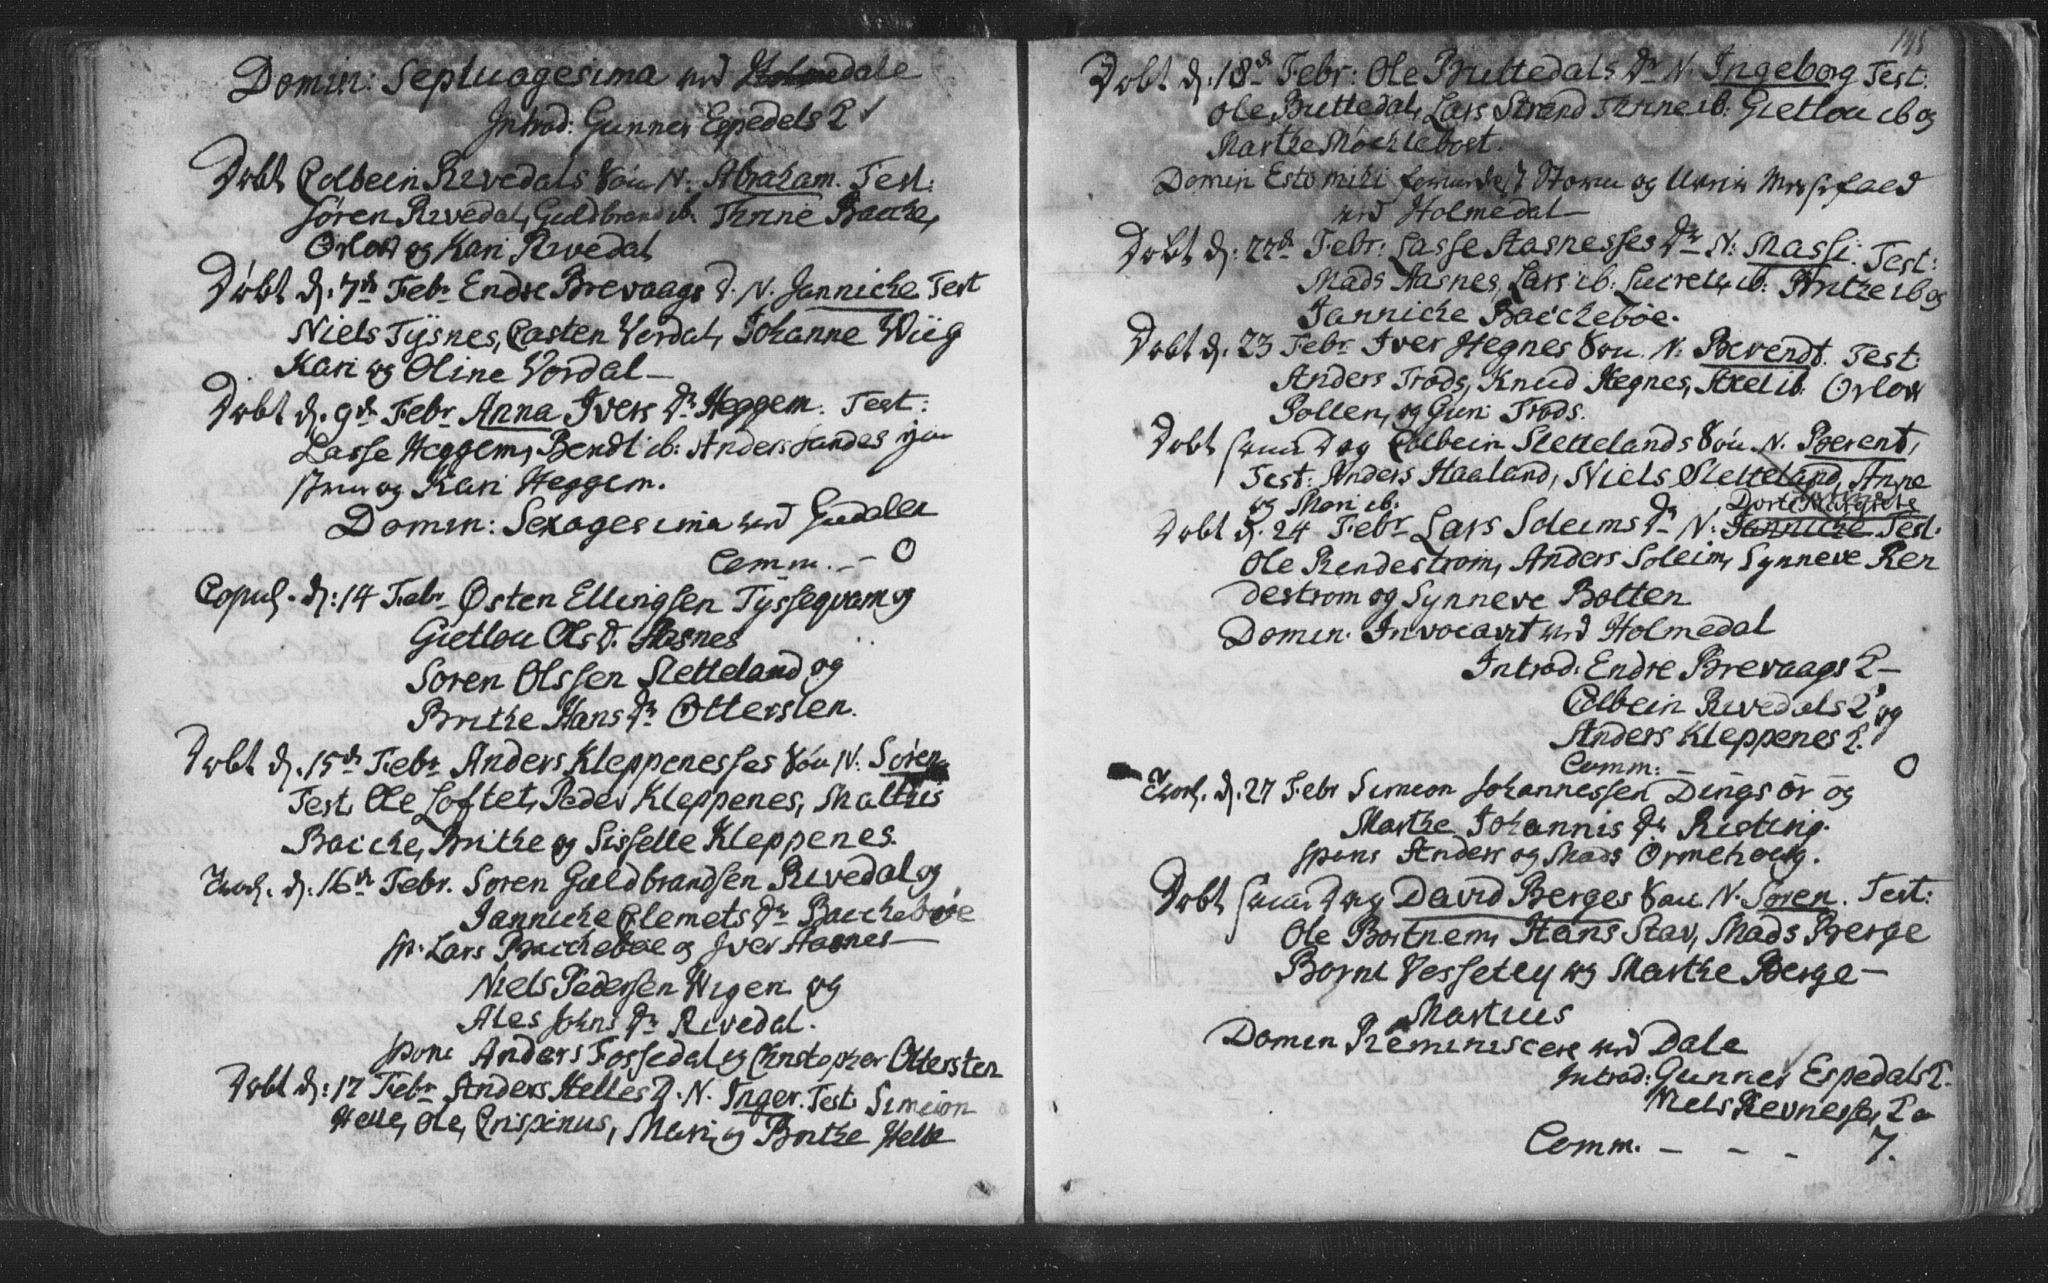 Domin: Septuagesima ved Holmedale
Introd: Gunner Espedels Q
Døbt Colbein Rivedals Søn N: Abraham. Test:
Søren Rivedal, Guldbrand ib. Thrine Bache,
Orlow og Kari Rivedal
Døbt d. 7de Febr Endre Brevaags D. N. Jannicke Test
Niels Tÿsnes, Casten Vordal, Johanne Wiig
Kari og Oline Vordal
Døbt d. 9de Febr Anna Ivers Dr Heggem. Test:
Lasse Heggem, Bendt ib: Anders Sandes
og Kari Heggem.
Domin: Sexagesima ved Guddal
Comm. - 0
Copul. d: 14 Febr Østen Ellingsen Tyssequam og
Gietlou Ols D. Aasnes
Soren Olssen Sletteland og
Brithe Hans Dr Ottersten.
Døbt d. 15de Febr Anders Kleppenesses Søn N: Søren
Test. Ole Loftet, Peder Kleppenes, Malthis
Baiche, Brithe og Sisselle Kleppenes.
Trol. d. 16de Febr. Soren Guldbrandsen Rivedal og
Jannicke Clemets Dr Baicheboe
Sp. Lars Baicheboe og Iver Aasnes
Niels Pedersen Wigen og
Ales Johns Dr Rivedal.
Spons Anders Fossedal og Christopher Ottersten
Døbt d: 17 Febr Anders Helles D. N. Inger. Test. Simeion
Helle, Ole, Crispinus, Mari og Brithe Helle
195
Døbt d. 18de Febr: Ole Buttedals Dr N. Ingeborg Test:
Ole Buttedal, Lars Strand Thrine ib: Gietlou ib og
Marthe Møchlebost.
Domin Estomihi formedelst Storm og Uveir Messefald
ved Holmedal
Døbt d: 22de Febr: Lasse Aasnesses Dr N: Massi: Test:
Mads Aasnes, Lars ib: Lucretz ib: Brithe ib og
Jannicke Baicheboe.
Døbt d. 23 Febr Iver Hegnes Søn N: Bevendt. Test:
Anders Trods, Knud Hegnes, Axel ib. Orlow
Pollen, og Guri Trods.
Døbt samme Dag Colbein Slettelands Søn N. Berent,
Test: Anders Haaland, Niels Sletteland, Anne
og Mari ib:
Dorte Margrete
Døbt d. 24 Febr Lars Soleims Dr N: Jannicke Test.
Ole Rendestrom, Anders Soleim, Synneve Ren
destrom og Synneve Botten
Domin. Invocavit ved Holmedal
Introd: Endre Brevaags Q
Colbein Rivedals Q og
Anders Kleppenes Q.
Comm: - - - - 0
Trol. d. 27 Febr Simeon Johannessen Dingsør og
Marthe Johannis Dr Risting.
Spons Anders og Mads Ormehoug.
Døbt samme Dag David Berges Søn N. Soren. Test:
Ole Bortnem, Hans Stav, Mads Berge
Borni Vesseley og Marthe Berge
Martius
Domin Reminiscere ved Dale
Introd: Gunner Espedals Q.
Niels Revnesses Q
Comm. - - - 7.